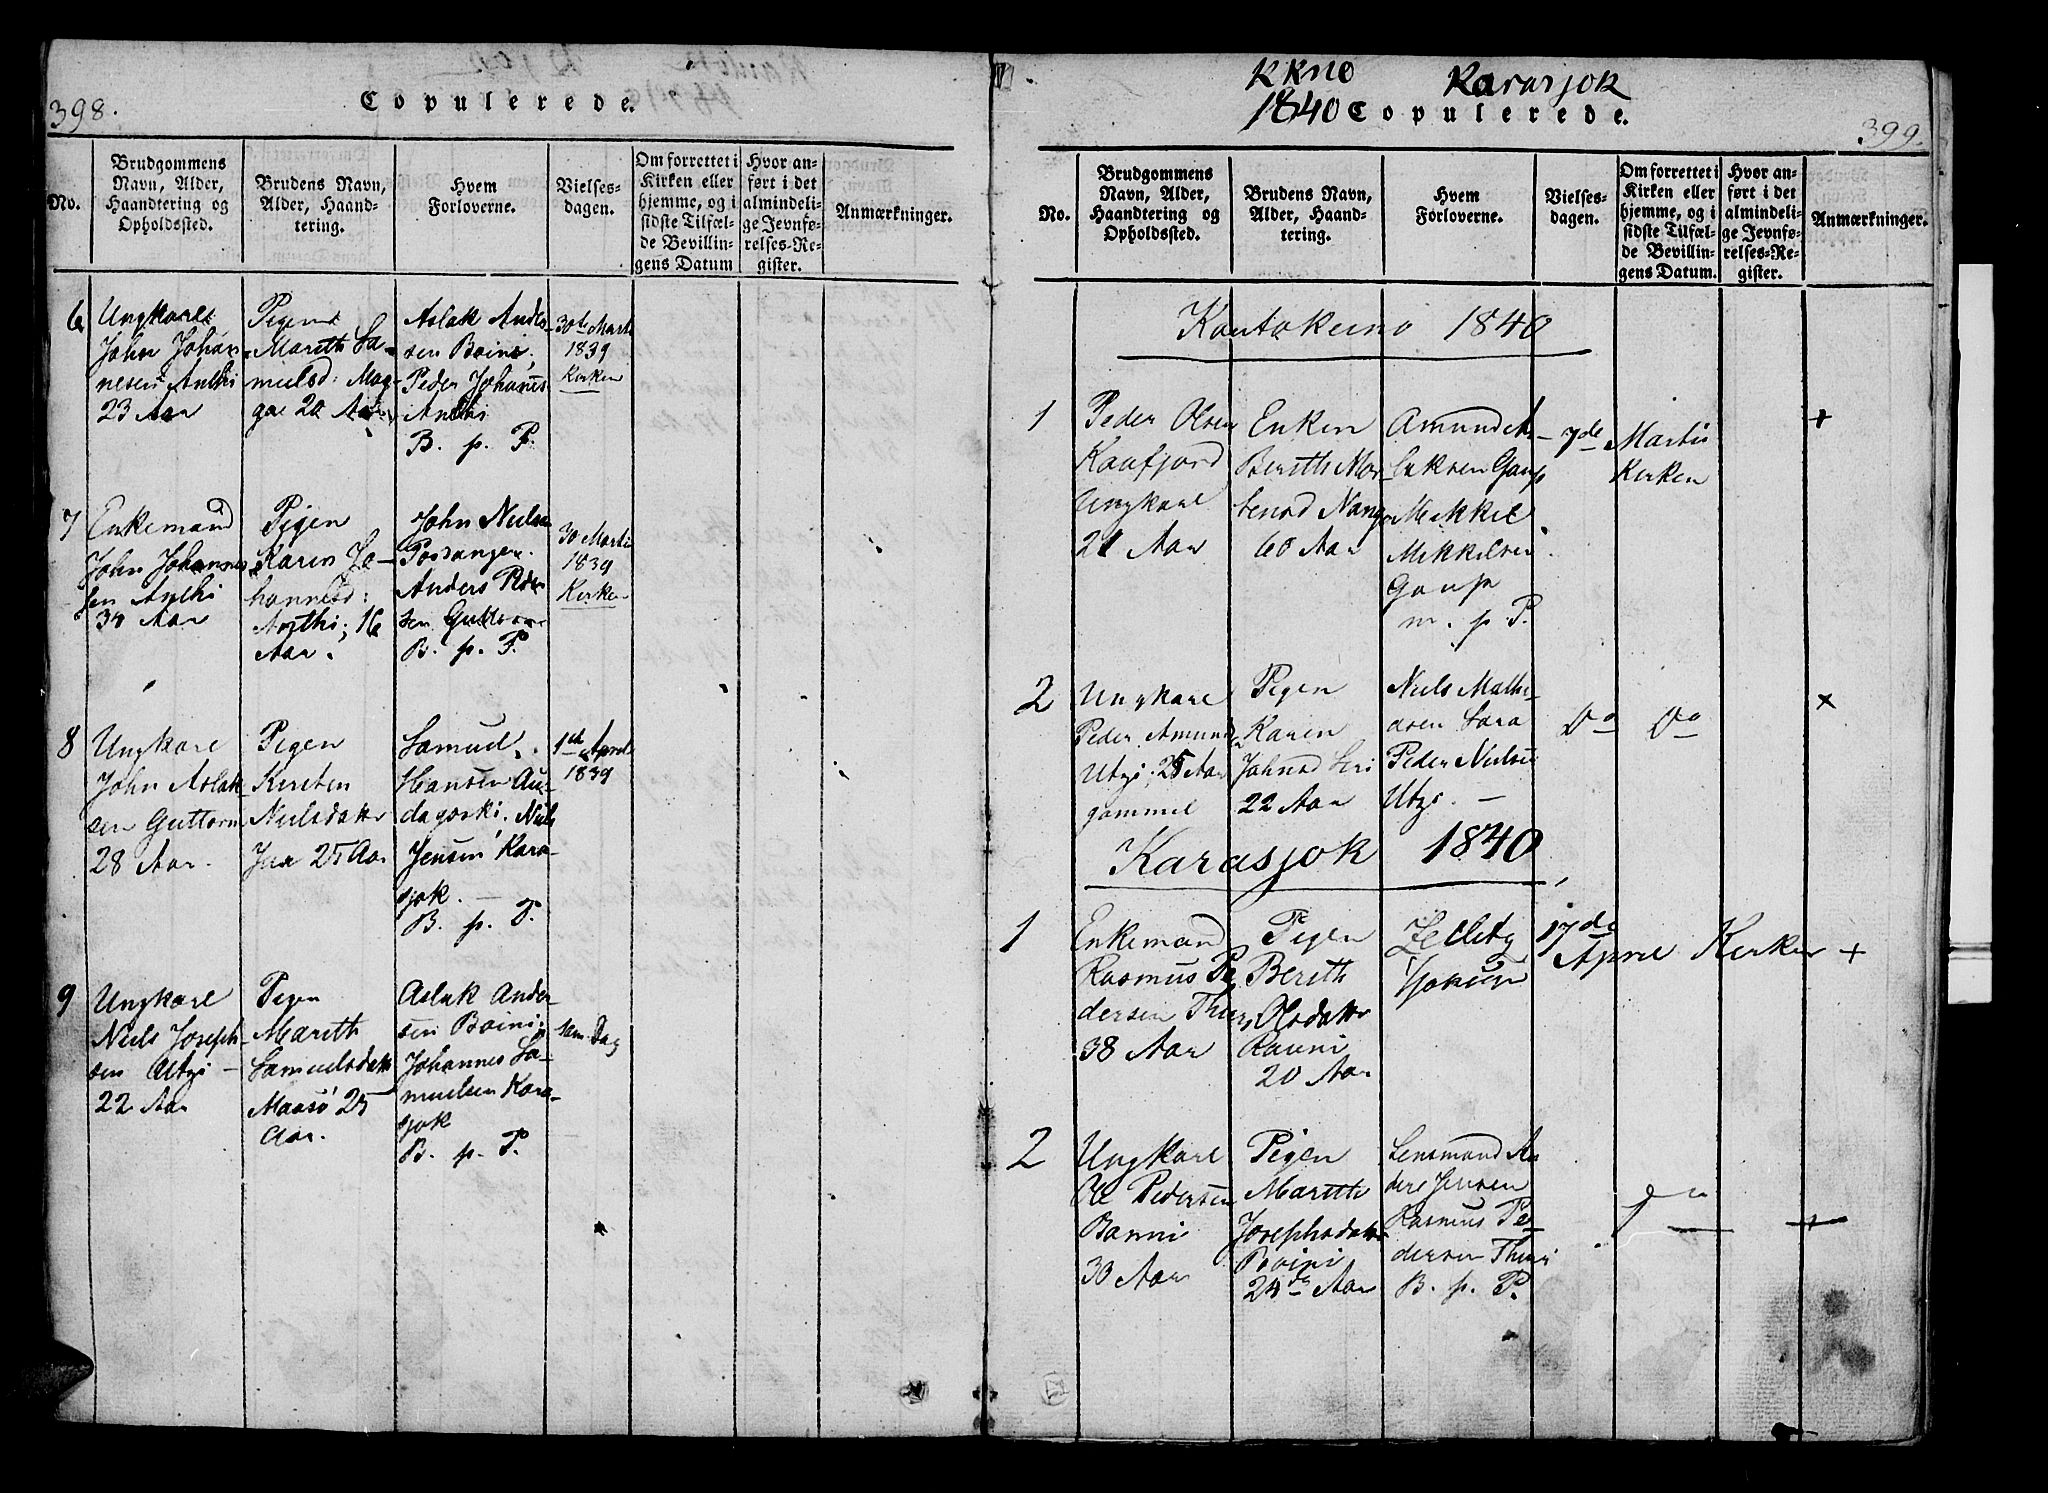 398.
Copulerede.
No.
Brudgommens
Navn, Alder,
Haandtering og
Opholdssted.
Brudens Navn,
Alder, Haand-
tering.
Hvem
Forloverne.
Vielses-
dagen.
Om forrettet i
Kirken eller
hjemme, og i
sidste Tilfæl-
de Bevillin-
gens Datum
Hvor an-
ført i det
almindeli-
ge Jevnfø-
relses-Re-
gister.
Anmærkninger.
6
Ungkarl
John Johan-
nesen Anthi
23 Aar
Pigen
Mareth Sa-
muelsd: Mag-
ga 20 Aar
Aslak Ander-
sen Boini,
Peder Johanes
Anthi
B. p. P.
30te Marti
1839
Kirken
7
Enkemand
John Johannes-
sen Anthi
34 Aar
Pigen
Karen Jo-
hannesd:
Anthi, 16
Aar.
John Nielsen
Porsanger.
Anders Peder
sen Guttorm
B. p. P.
30 Marti
1839
Kirken
8
Ungkarl
John Aslak-
sen Guttorm
28 Aar.
Pigen
Kirsten
Nielsdatter
25 Aar
Samuel
Hansen Au-
dagoski. Niels
Jensen Kara-
sjok.
B. p. P.
1ste April
1839
9
Ungkarl
Niels Joseph-
sen Utzi
22 Aar
Pigen
Mareth
Samuelsdatter
Maasö 25
Aar.
Aslak Ander-
sen Boini
Johannes Sa-
muelsen Kara-
sjok
B. p. P.
sam Dag
KKno Karasjok
1840 Copulerede.
399.
No.
Brudgommens
Navn, Alder,
Haandtering og
Opholdssted.
Brudens Navn,
Alder, Haand-
tering.
Hvem
Forloverne.
Vielses-
dagen.
Om forrettet i
Kirken eller
hjemme, og i
sidste Tilfæl-
de Bevillin-
gens Datum.
Hvor an-
ført i det
almindeli-
ge Jevnfø-
relses-Re-
gister.
Anmærkninger.
Kautokeino 1840
1
Peder Olsen
Kaafjord
Ungkarl
21 Aar
Enken
Bereth Mor-
tensd Nango
60 Aar
Amund As-
laksen Gaup
Mikkel
Mikkelsen
Gaup
m. p. P.
7de Martii
Kirken
+
2
Ungkarl
Peder Amunds
Utzi, 25 Aar
gammel
Pigen
Karen
Johnsd Siri
22 Aar
Niels Mathi-
asen Sara
Peder Nielsen
Utzi. —
Do Do
x
Karasjok 1840
1
Enkemand
Rasmus Pe
dersen Thuri
38 Aar
Pigen
Bereth
Olsdatter
Rauni
20 Aar
17de
April Kirken +
2
Ungkarl
Ole Pedersen
Banni
30 Aar
Pigen
Mareth
Josephsdatter
Boini
24de Aar
Lensmand An
ders Jensen
Rasmus Pe-
dersen Thuri
B. p. P.
+